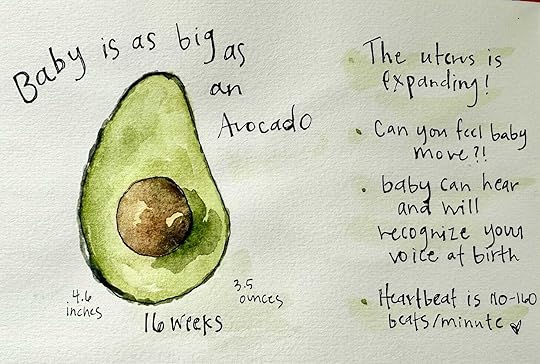 Baby is as big as
an
Avocado
4.6
inches
3.5
ounces
16 weeks
• The uterus is
expanding!
• Can you feel baby
move?!
• baby can hear
and will
recognize your
voice at birth
• Heartbeat is 110-160
beats/minute ♡